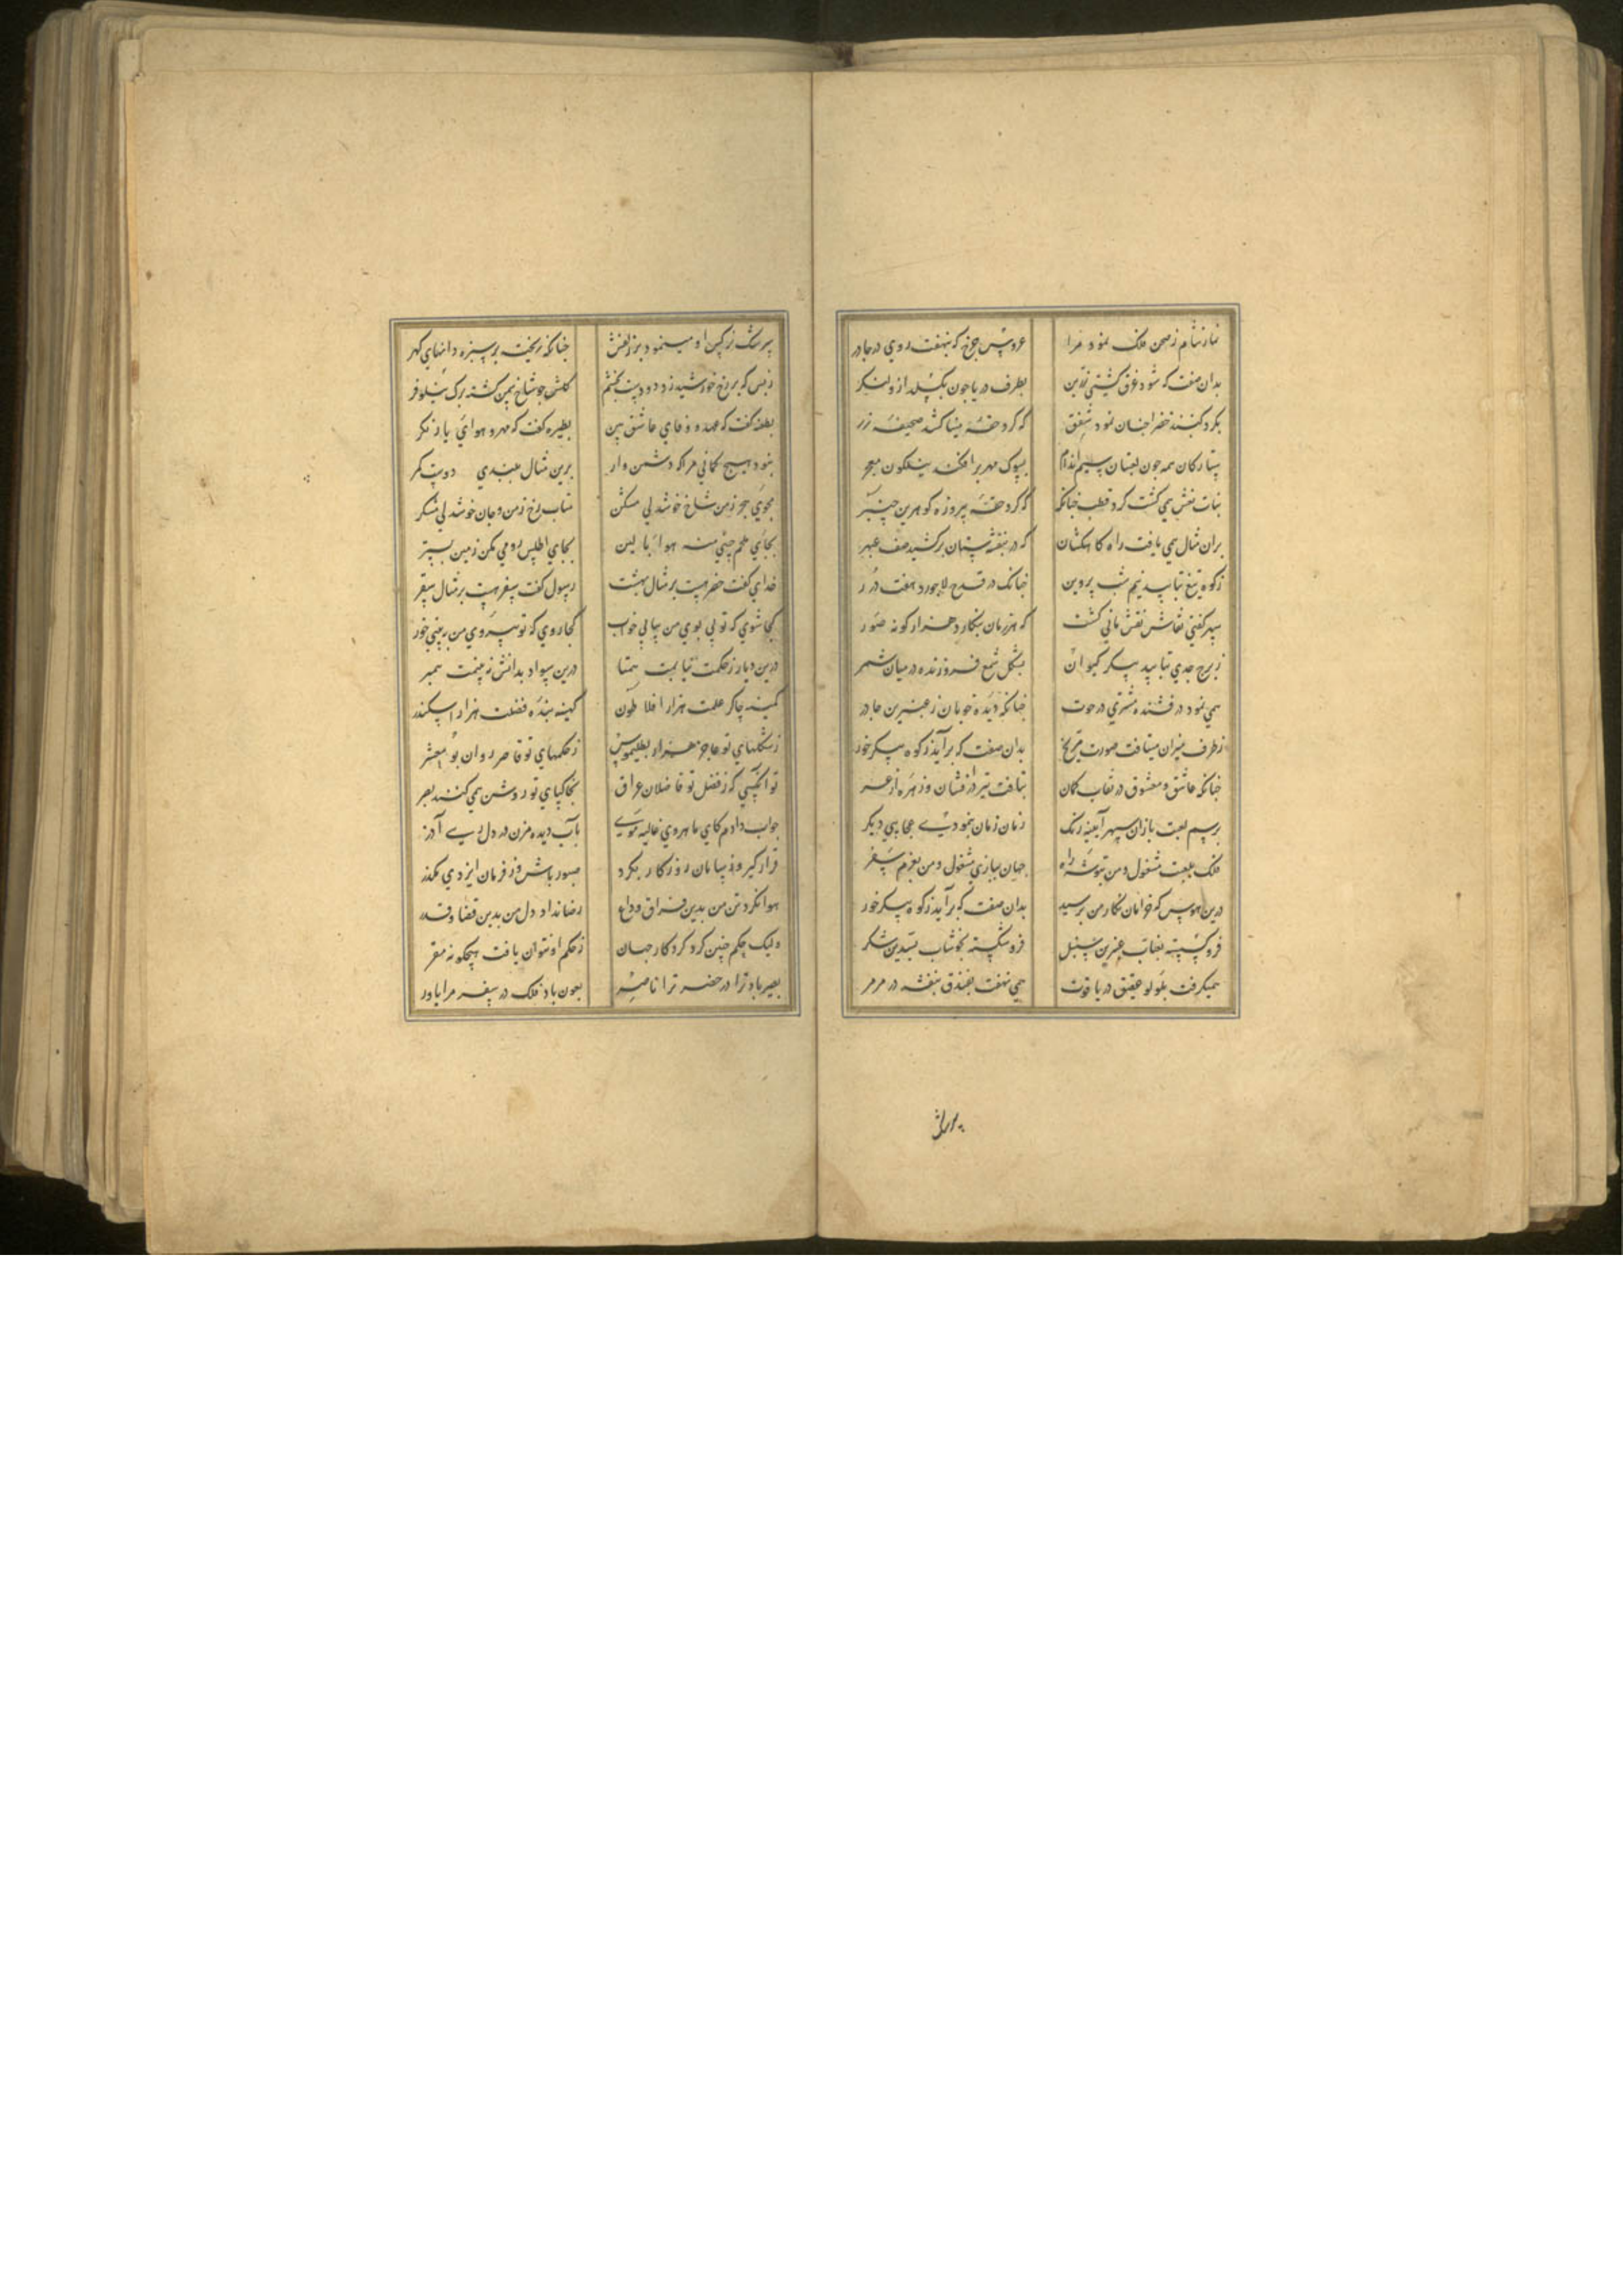 نماز شام ز صحن فلک نمود مرا عروس چرخ که بنهفت روی در چادر
بدان صفت که شود غرق کشتی زرین بطرف دریا چون بکسلد ازو لنکر
بکرد کنبد خضرا چنان نمود شفق که کرد حقه مینا کشند صحیفه زر
ستارکان همه چون لعبتان سیم اندام بسوک مهر برافکنده نیلکون معجر
بنات نعش همی کشت کرد قطب چنانک که کرد حقه پیروزه کوهرین چنبر
بران مثال همی یافت راه کاهکشان که در بنفشه ستان برکشید صف عبهر
ز کوه تیغ بتابید نیم شب پروین چنانک در قدح لاجورد هفت درر
سپهر کفتی نقاش نقش مانی کشت که هر زمان بنکارد هزار کونه صور
ز برج جدی بتابید پیکر کیوان بشکل شمع فروزنده در میان شمر
همی نمود درفشنده مشتری در حوت چنانکه دیده خوبان ز عنبرین چادر
ز طرف میزان میتافت صورت مریخ بدان صفت که برآید ز کوه پیکر خور
چنانکه عاشق و معشوق در نقاب کمان بتافت تیر درافشان و زهره ازهر
برسم لعبت بازان سپهر آینه رنک زمان زمان بنمودی عجایبی دیکر
فلک بلعبت مشغول و من بتوشه راه جهان ببازی مشغول و من بعزم سفر
درین هوس که خرامان نکار من برسید بدان صفت که برآید ز کوه پیکر خور
فرو کسسته بعناب عنبرین سنبل فرو شکسته بخوشاب بسدین شکر
همیکرفت بلولو عقیق در یاقوت همی نهفت بفندق بنفشه در مرمر
سرشک نرکس او مینمود بر زلفش چنانکه ریخت بر سبزه دانهای کهر
ز بس که بر رخ خورشید زد دو دست بخشم کلش چو شاخ سمن کشت برک نیلوفر
بطعنه کفت که عهد و وفای عاشق بین بطیره کفت که مهر و هوای یار نکر
نبود هیچ کمانی مرا که دشمن وار برین مثال ببندی دوست کمر
مجوی هجر ز من شاخ خوشدلی مشکن متاب رخ ز من و جان خوشدلی مشکر
بجای ملحم چینی منه هوا بالین بجای اطلس رومی مکن زمین بستر
خدای کفت حضر هست بر مثال بهشت رسول کفت سفر هست بر مثال سقر
کجا شوی که تو بی بوی من نیابی خواب کجا روی که تو بی روی من نبینی خور
درین دیار ز حکمت نیابمت همتا درین سواد بدانش نه بینمت همبر
کمینه چاکر علمت هزار افلاطون کهینه بنده فضلت هزار اسکندر
ز شکلهای تو عاجز هزار بطلیموس ز حکمهای تو قاصر روان بو معشر
تو آنکسی که ز فضل تو فاضلان عراق بخاکپای تو روشن همی کنند بصر
جواب دادم کای ماهروی غالیه موی بآب دیده مزن در دل رهی آذر
قرار کیر و ز سامان روزکار بکرد صبور باش و ز فرمان ایزدی مکذر
هوا نکرد تن من بدین فراق وداع رضا نداد دل من بدین قضا و قدر
ولیک حکم چنین کرد کردکار جهان ز حکم او نتوان یافت هیچکونه مفر
بصیر باد ترا در حضر ترا ناصر بعون باد فلک در سفر مرا یاور